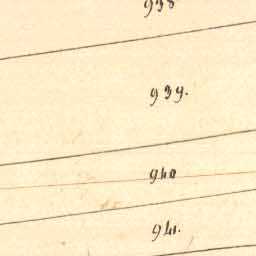 938
939.
940
941.